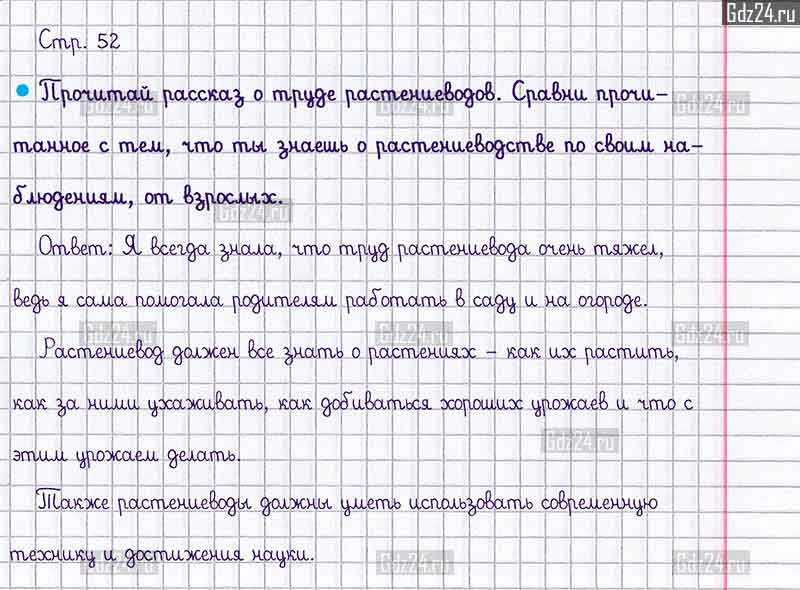 Gdz24.ru
Стр. 52
Прочитай рассказ о труде растениеводов. Сравни прочи-
танное с тем, что ты знаешь о растениеводстве по своим на-
блюдениям, от взрослых.
Ответ: Я всегда знала, что труд растениевода очень тяжел,
ведь я сама помогала родителям работать в саду и на огороде.
Растениевод должен все знать о растениях – как их растить,
как за ними ухаживать, как добиваться хороших урожаев и что с
этим урожаем делать.
Также растениеводы должны уметь использовать современную
технику и достижения науки.